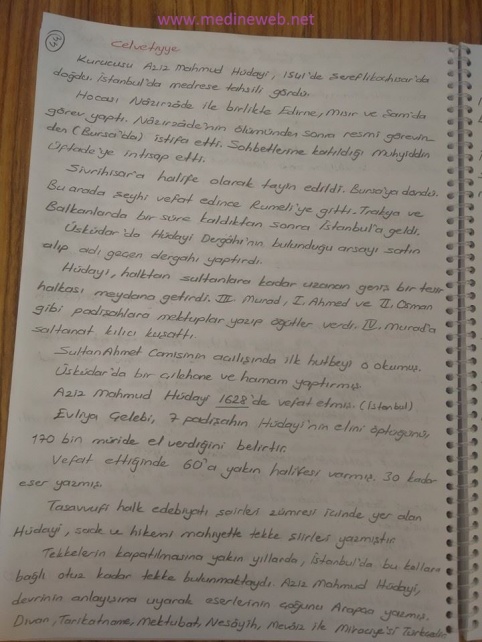 www.medineweb.net
Celvetiyye
Kurucusu Aziz Mahmud Hüdayi, 1541'de Şereflikoçhisar'da
doğdu. İstanbul'da medrese tahsili gördü.
Hocası Nâzırzâde ile birlikte Edirne, Mısır ve Şam'da
görev yaptı. Nâzırzâde'nin ölümünden sonra resmi görevin-
den (Bursa'da) istifa etti. Sohbetlerine katıldığı Muhyiddin
Üftade'ye intisap etti.
Sivrihisar'a halife olarak tayin edildi. Bursa'ya döndü.
Bu arada şeyhi vefat edince Rumeli'ye gitti. Trakya ve
Balkanlarda bir süre kaldıktan sonra İstanbul'a geldi.
Üsküdar'da Hüdayi Dergâhı'nın bulunduğu arsayı satın
alıp adı geçen dergahı yaptırdı.
Hüdayi, halktan sultanlara kadar uzanan geniş bir tesir
halkası meydana getirdi. III. Murad, I. Ahmed ve II. Osman
gibi padişahlara mektuplar yazıp öğütler verdi. IV. Murad'a
saltanat kılıcı kuşattı.
Sultan Ahmet Camisinin açılışında ilk hutbeyi o okumuş.
Üsküdar'da bir çilehane ve hamam yaptırmış.
Aziz Mahmud Hüdayi 1628'de vefat etmiş. (İstanbul)
Evliya Çelebi, 7 padişahın Hüdayi'nin elini öptüğünü,
170 bin müride el verdiğini belirtir.
Vefat ettiğinde 60'a yakın halifesi varmış. 30 kadar
eser yazmış.
Tasavvufi halk edebiyatı şairleri zümresi içinde yer alan
Hüdayi, sade ve hikemi mahiyette tekke şiirleri yazmıştır.
Tekkelerin kapatılmasına yakın yıllarda, İstanbul'da bu kollara
bağlı otuz kadar tekke bulunmaktaydı. Aziz Mahmud Hüdayi,
devrinin anlayışına uyarak eserlerinin çoğunu Arapça yazmış.
Divan, Tarikatname, Mektubat, Nesâyih, Mevâiz ile Miraciye'si